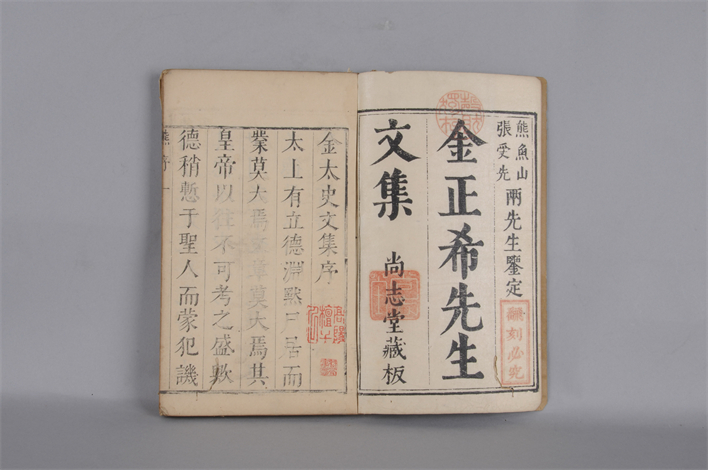 熊魚山
張受先
兩先生鑒定
金正希先生
文集
尚志堂藏板
翻刻必究
金太史文集序
太上有立德淵默尸居而
業莫大焉立莫大焉其
皇帝以往不可考之盛歟
德稍慙于聖人而蒙犯譏